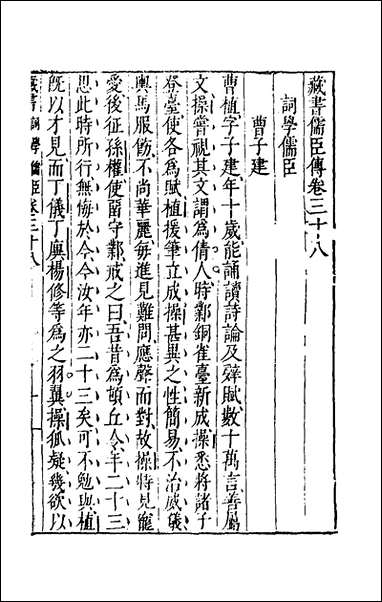 藏書儒臣傳卷三十八
詞學儒臣
曹子建
曹植字子建年十歲能誦讀詩論及辭賦數十萬言善屬
文操嘗視其文謂為倩人時鄴銅雀臺新成操悉將諸子
登臺使各為賦植援筆立成操甚異之性簡易不治威儀
輿馬服飭不尚華麗每進見難問應聲而對故操特見寵
愛後征孫權使留守鄴戒之曰吾昔為頓丘令年二十三
思此時所行無悔於今今汝年亦二十三矣可不勉與植
既以才見而丁儀丁廙楊修等為之羽翼操狐疑幾欲以
藏書詞學儒臣卷三十八